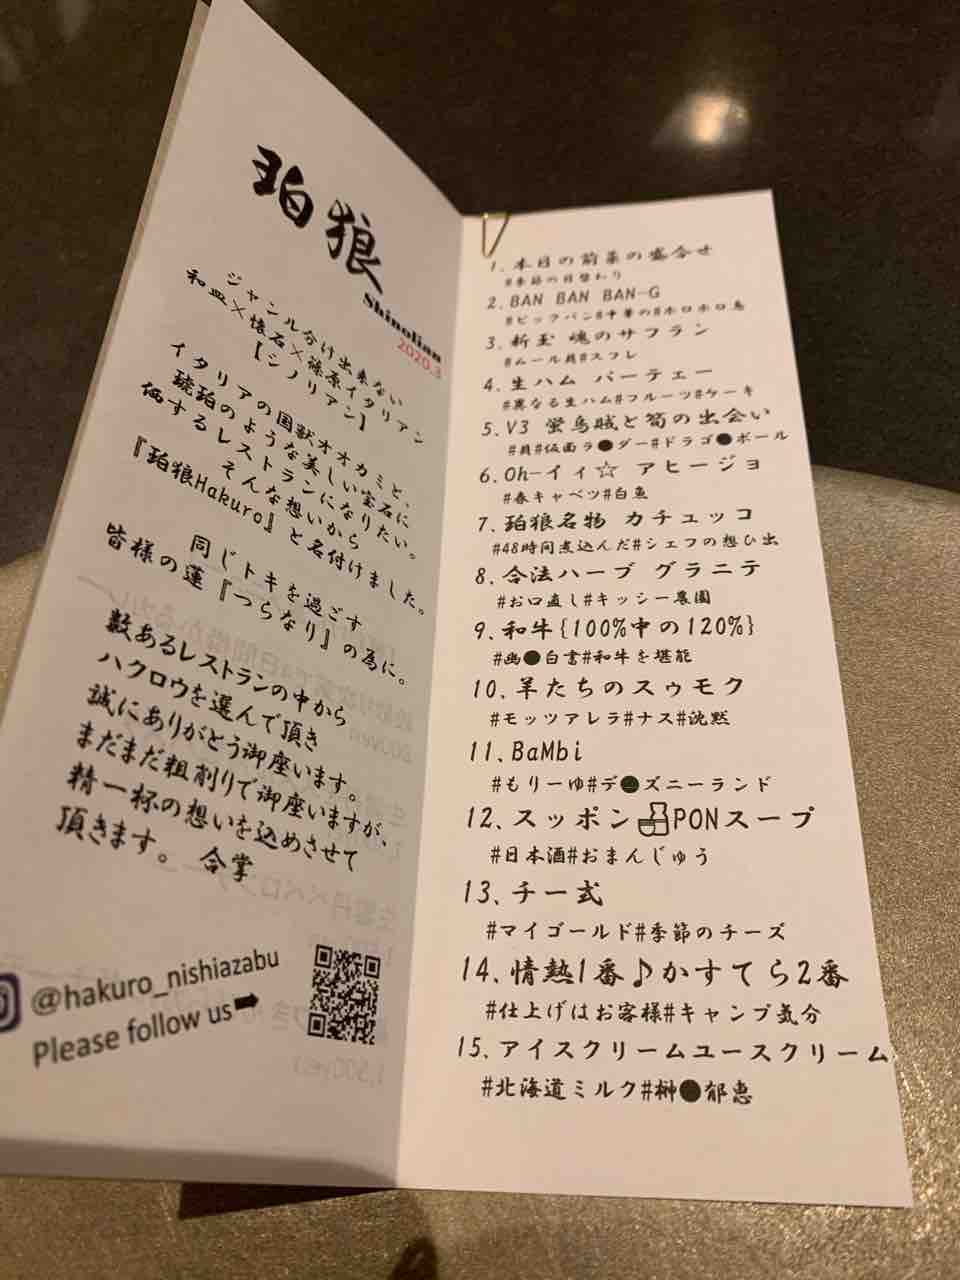 珀狼
Shinolian
2020.3
ジャンル分け出来ない
和皿×懐石×篠原イタリアン
【シノリアン】
イタリアの国獣オオカミと、
琥珀のような美しい宝石に
価するレストランになりたい。
そんな想いから
『珀狼Hakuro』と名付けました。
同じトキを過ごす
皆様の蓮『つらなり』の為に。
数あるレストランの中から
ハクロウを選んで頂き
誠にありがとう御座います。
まだまだ粗削りで御座いますが、
精一杯の想いを込めさせて
頂きます。 合掌
@hakuro_nishiazabu
Please follow us➡
1、本日の前菜の盛合せ
#季節の日替わり
2、BAN BAN BAN-G
#ビックバン#中華の#ホロホロ鳥
3、新玉 魂のサフラン
#ムール貝#スフレ
4、生ハム パーテェー
#異なる生ハム#フルーツ#ケーキ
5、V3 蛍烏賊と筍の出会い
#貝#仮面ラ●ダー#ドラゴ●ボール
6、Oh-イィ☆ アヒージョ
#春キャベツ#白魚
7、珀狼名物 カチュッコ
#48時間煮込んだ#シェフの想ひ出
8、合法ハーブ グラニテ
#お口直し#キッシー農園
9、和牛{100%中の120%}
#幽●白書#和牛を堪能
10、羊たちのスゥモク
#モッツアレラ#ナス#沈黙
11、BaMbi
#もりーゆ#デ●ズニーランド
12、スッポン🍶PONスープ
#日本酒#おまんじゅう
13、チー式
#マイゴールド#季節のチーズ
14、情熱1番♪かすてら2番
#仕上げはお客様#キャンプ気分
15、アイスクリームユースクリーム
#北海道ミルク#榊●郁恵